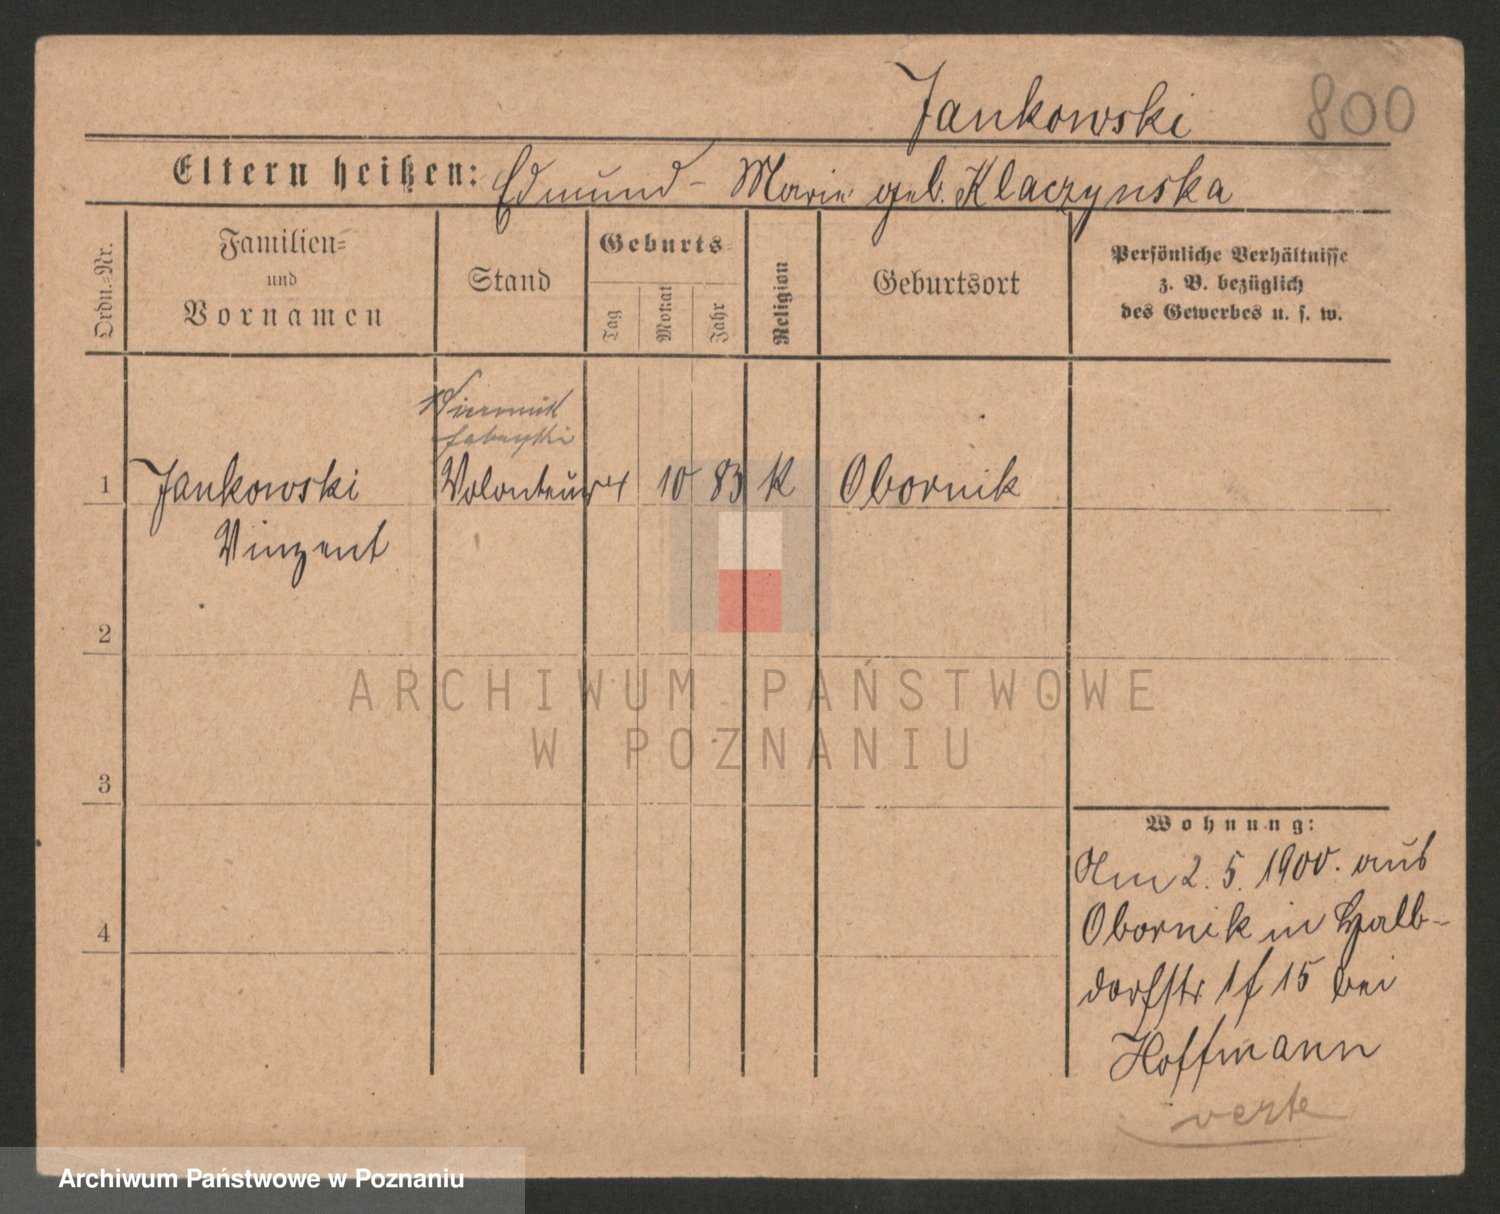 Jankowski
800
Eltern heißen: Edmund - Marie geb. Klaczynska
Ordn.-Nr.
Familien-
und
Vornamen
Stand
Geburts-
Tag
Monat
Jahr
Religion
Geburtsort
Persönliche Verhältnisse
z. B. bezüglich
des Gewerbes u. s. w.
1 Jankowski Volonteur 10 83 K Obornik
Vinzent
2
3
4
Wohnung:
Am 2. 5. 1900. aus
Obornik in Halb-
dorfstr 15 bei
Hoffmann
verte
ARCHIWUM PAŃSTWOWE
W POZNANIU
Archiwum Państwowe w Poznaniu